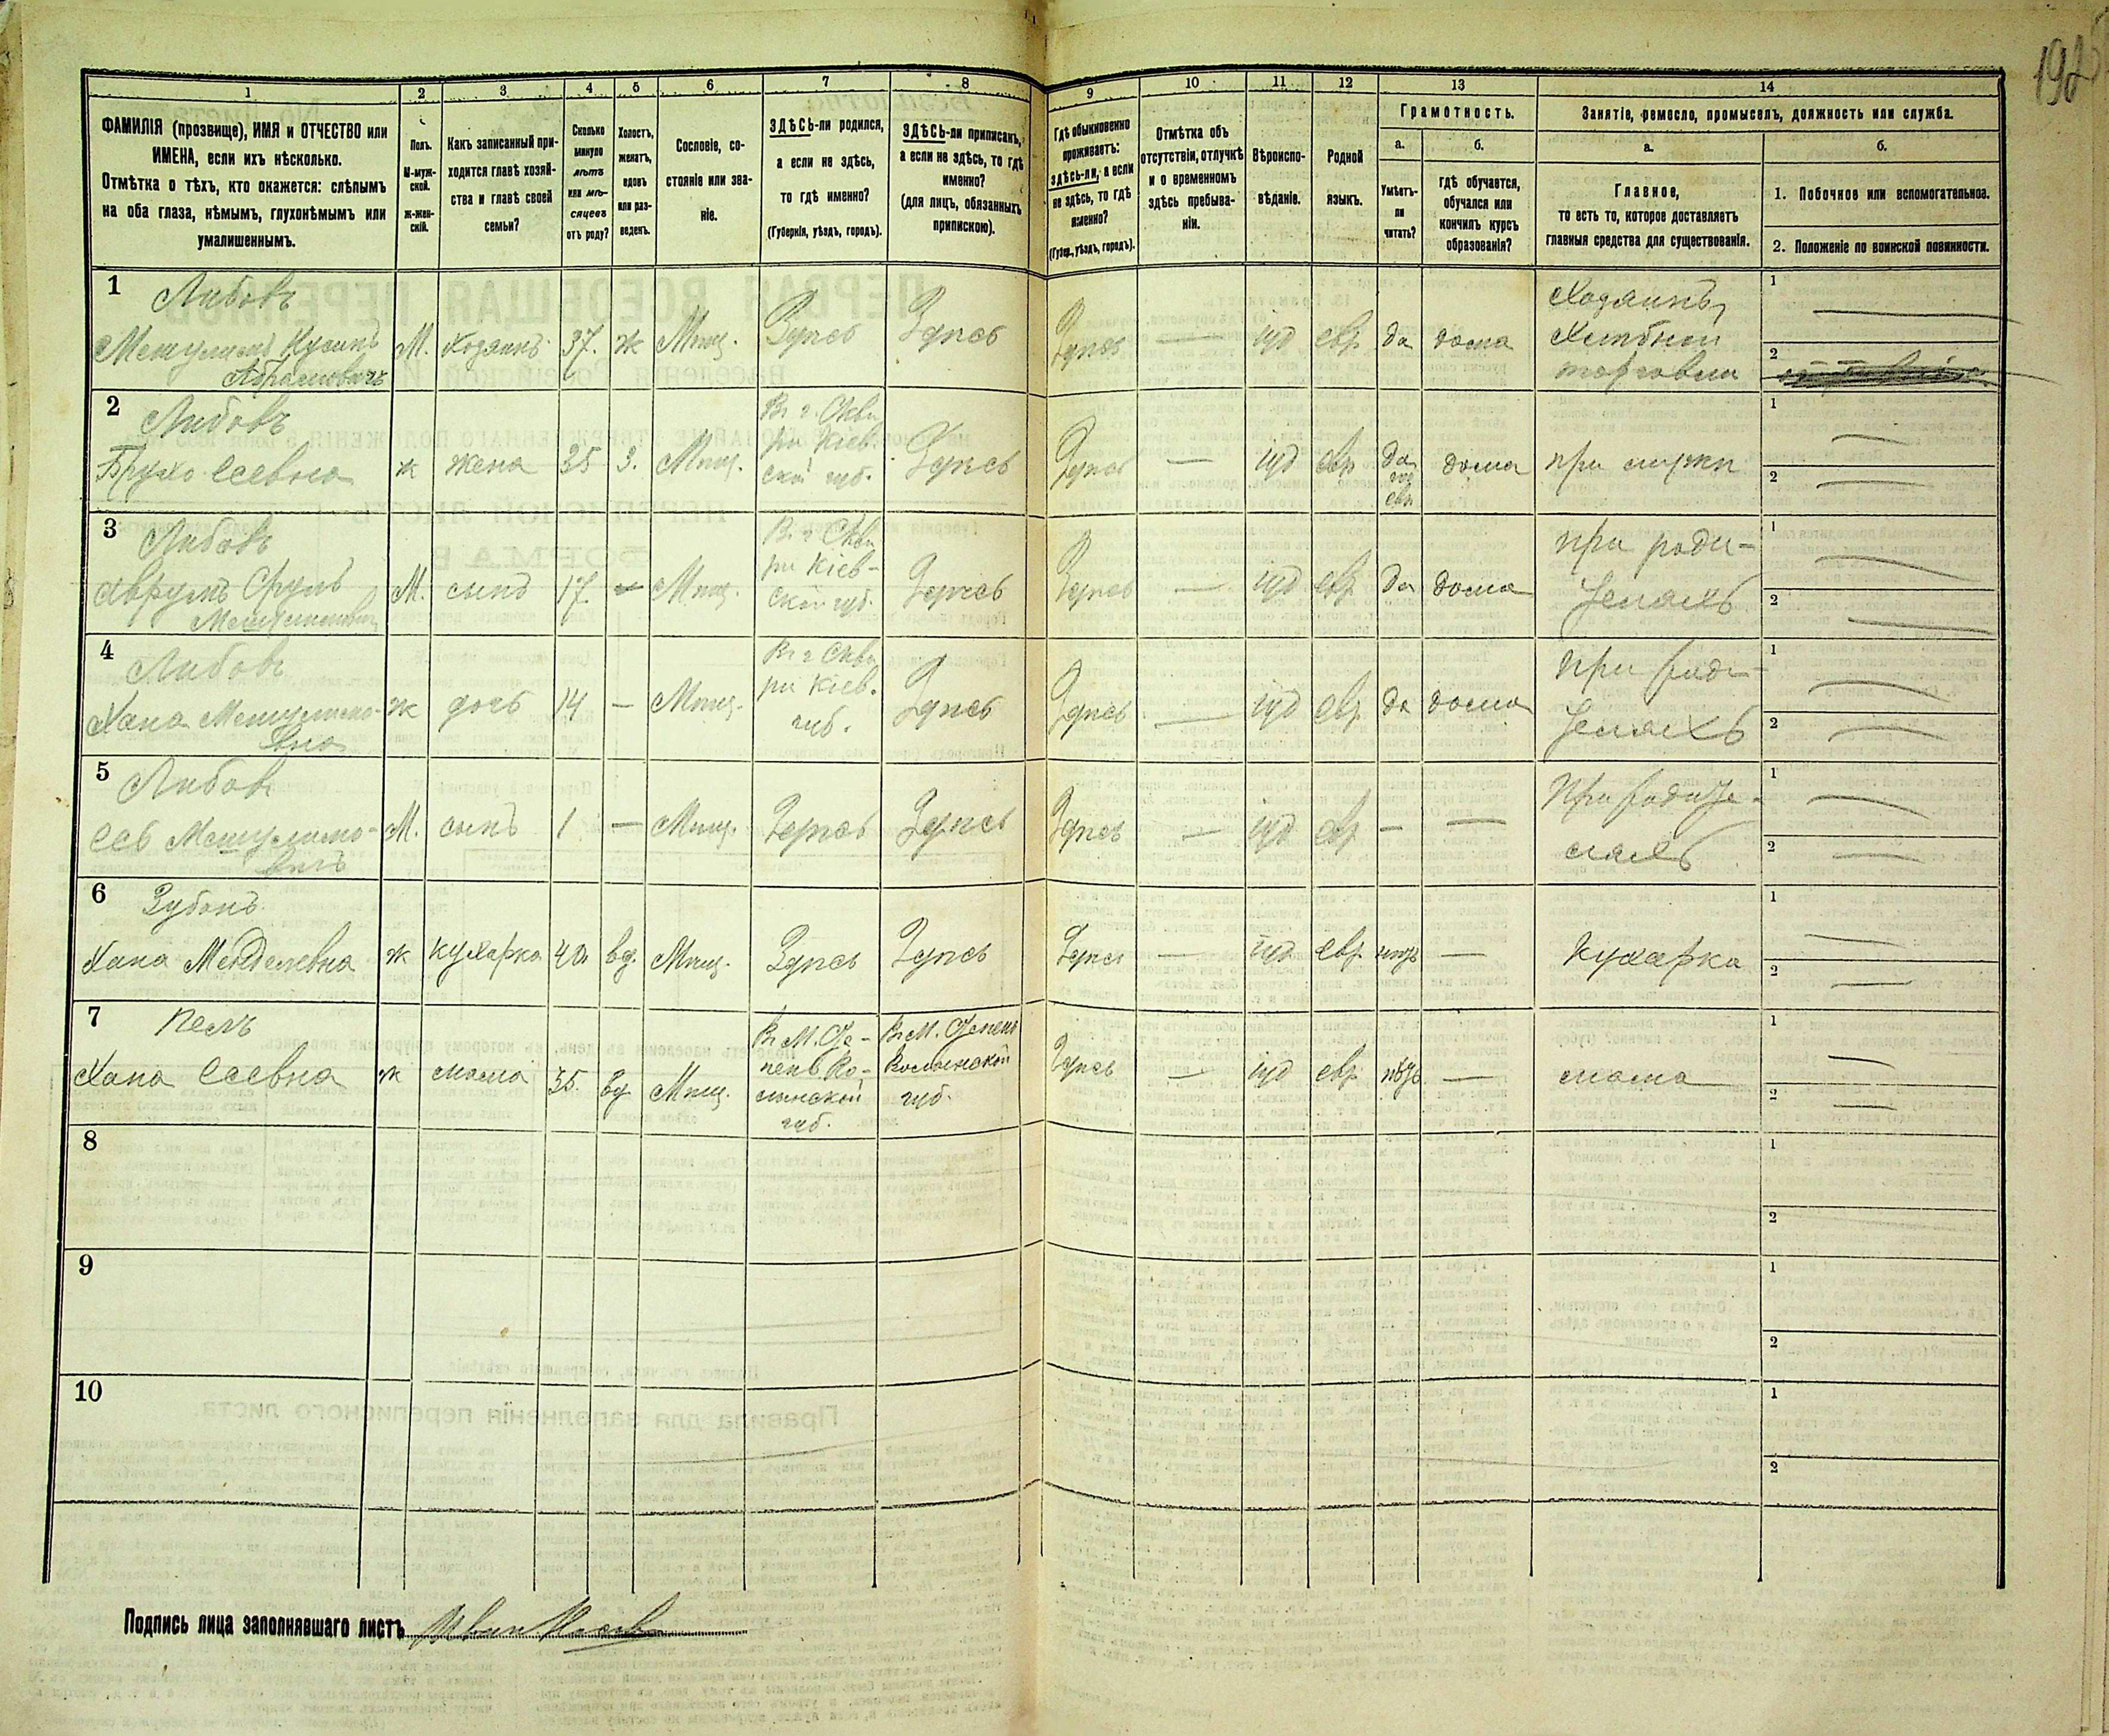 192
1 2 3 4 5 6 7 8 9 10 11 12 13 14
ФАМИЛІЯ (прозвище), ИМЯ и ОТЧЕСТВО или
ИМЕНА, если ихъ нѣсколько.
Отмѣтка о тѣхъ, кто окажется: слѣпымъ
на оба глаза, нѣмымъ, глухонѣмымъ или
умалишеннымъ.
Полъ.
М-муж-
ской.
ж-жен-
скій.
Какъ записанный при-
ходится главѣ хозяй-
ства и главѣ своей
семьи?
Сколько
минуло
лѣтъ
или мѣ-
сяцевъ
отъ роду?
Холостъ,
женатъ,
вдовъ
или раз-
веденъ.
Сословіе, со-
стояніе или зва-
ніе.
ЗДѢСЬ-ли родился,
а если не здѣсь,
то гдѣ именно?
(Губернія, уѣздъ, городъ).
ЗДѢСЬ-ли приписанъ,
а если не здѣсь, то гдѣ
именно?
(для лицъ, обязанныхъ
припискою).
Гдѣ обыкновенно
проживаетъ:
здѣсь-ли, а если
не здѣсь, то гдѣ
именно?
(Губер., уѣздъ, городъ).
Отмѣтка объ
отсутствіи, отлучкѣ
и о временномъ
здѣсь пребыва-
ніи.
Вѣроиспо-
вѣданіе.
Родной
языкъ.
Грамотность.
а.
Умѣетъ-
ли
читать?
б.
гдѣ обучается,
обучался или
кончилъ курсъ
образованія?
Занятіе, ремесло, промыселъ, должность или служба.
а.
Главное,
то есть то, которое доставляетъ
главныя средства для существованія.
б.
1. Побочное или вспомогательное.
2. Положеніе по воинской повинности.
1 Либовъ
Абрамовичъ
М. Хозяинъ 37. ж Мѣщ. Здѣсь Здѣсь Здѣсь — іуд евр да дома
Хозяинъ,
Хлѣбной
торговли
1 —
2
2 Либовъ
ж жена 35 З. Мѣщ.
Въ г. Скви
рѣ Кіев.
ской губ.
Здѣсь Здѣсь — іуд евр
да
евр
дома при мужѣ
1 —
2 —
3 Либовъ
Аврумъ Сруль
М. сынъ 17. — Мѣщ.
Въ г Скви
рѣ Кіев-
ской губ.
Здѣсь Здѣсь — іуд евр да дома
при роди-
теляхъ
1 —
2 —
4 Либовъ
Хана Мешулимо-
вна
ж дочь 14 — Мѣщ.
Въ г Скви
рѣ Кіев.
губ.
Здѣсь Здѣсь — іуд евр. да дома
при роди-
теляхъ
1 —
2 —
5 Либовъ
Сеь Мешулимо-
вичъ
М. сынъ 1 — Мѣщ. Здѣсь Здѣсь Здѣсь — іуд евр. — —
При родите-
ляхъ
1 —
2 —
6 Зубокъ
Хана Менделевна ж кухарка 40. вд. Мѣщ. Здѣсь Здѣсь Здѣсь — іуд. евр. нѣтъ — Кухарка
1 —
2 —
7
Хана Сеевна ж мамка 35. вд Мѣщ.
Въ М. Сте-
пень Во-
лынской
губ.
Въ М. Степень
Волынской
губ.
Здѣсь — іуд евр. нѣтъ — мамка
1 —
2 —
8
1
2
9
1
2
10
1
2
Подпись лица заполнявшаго листъ